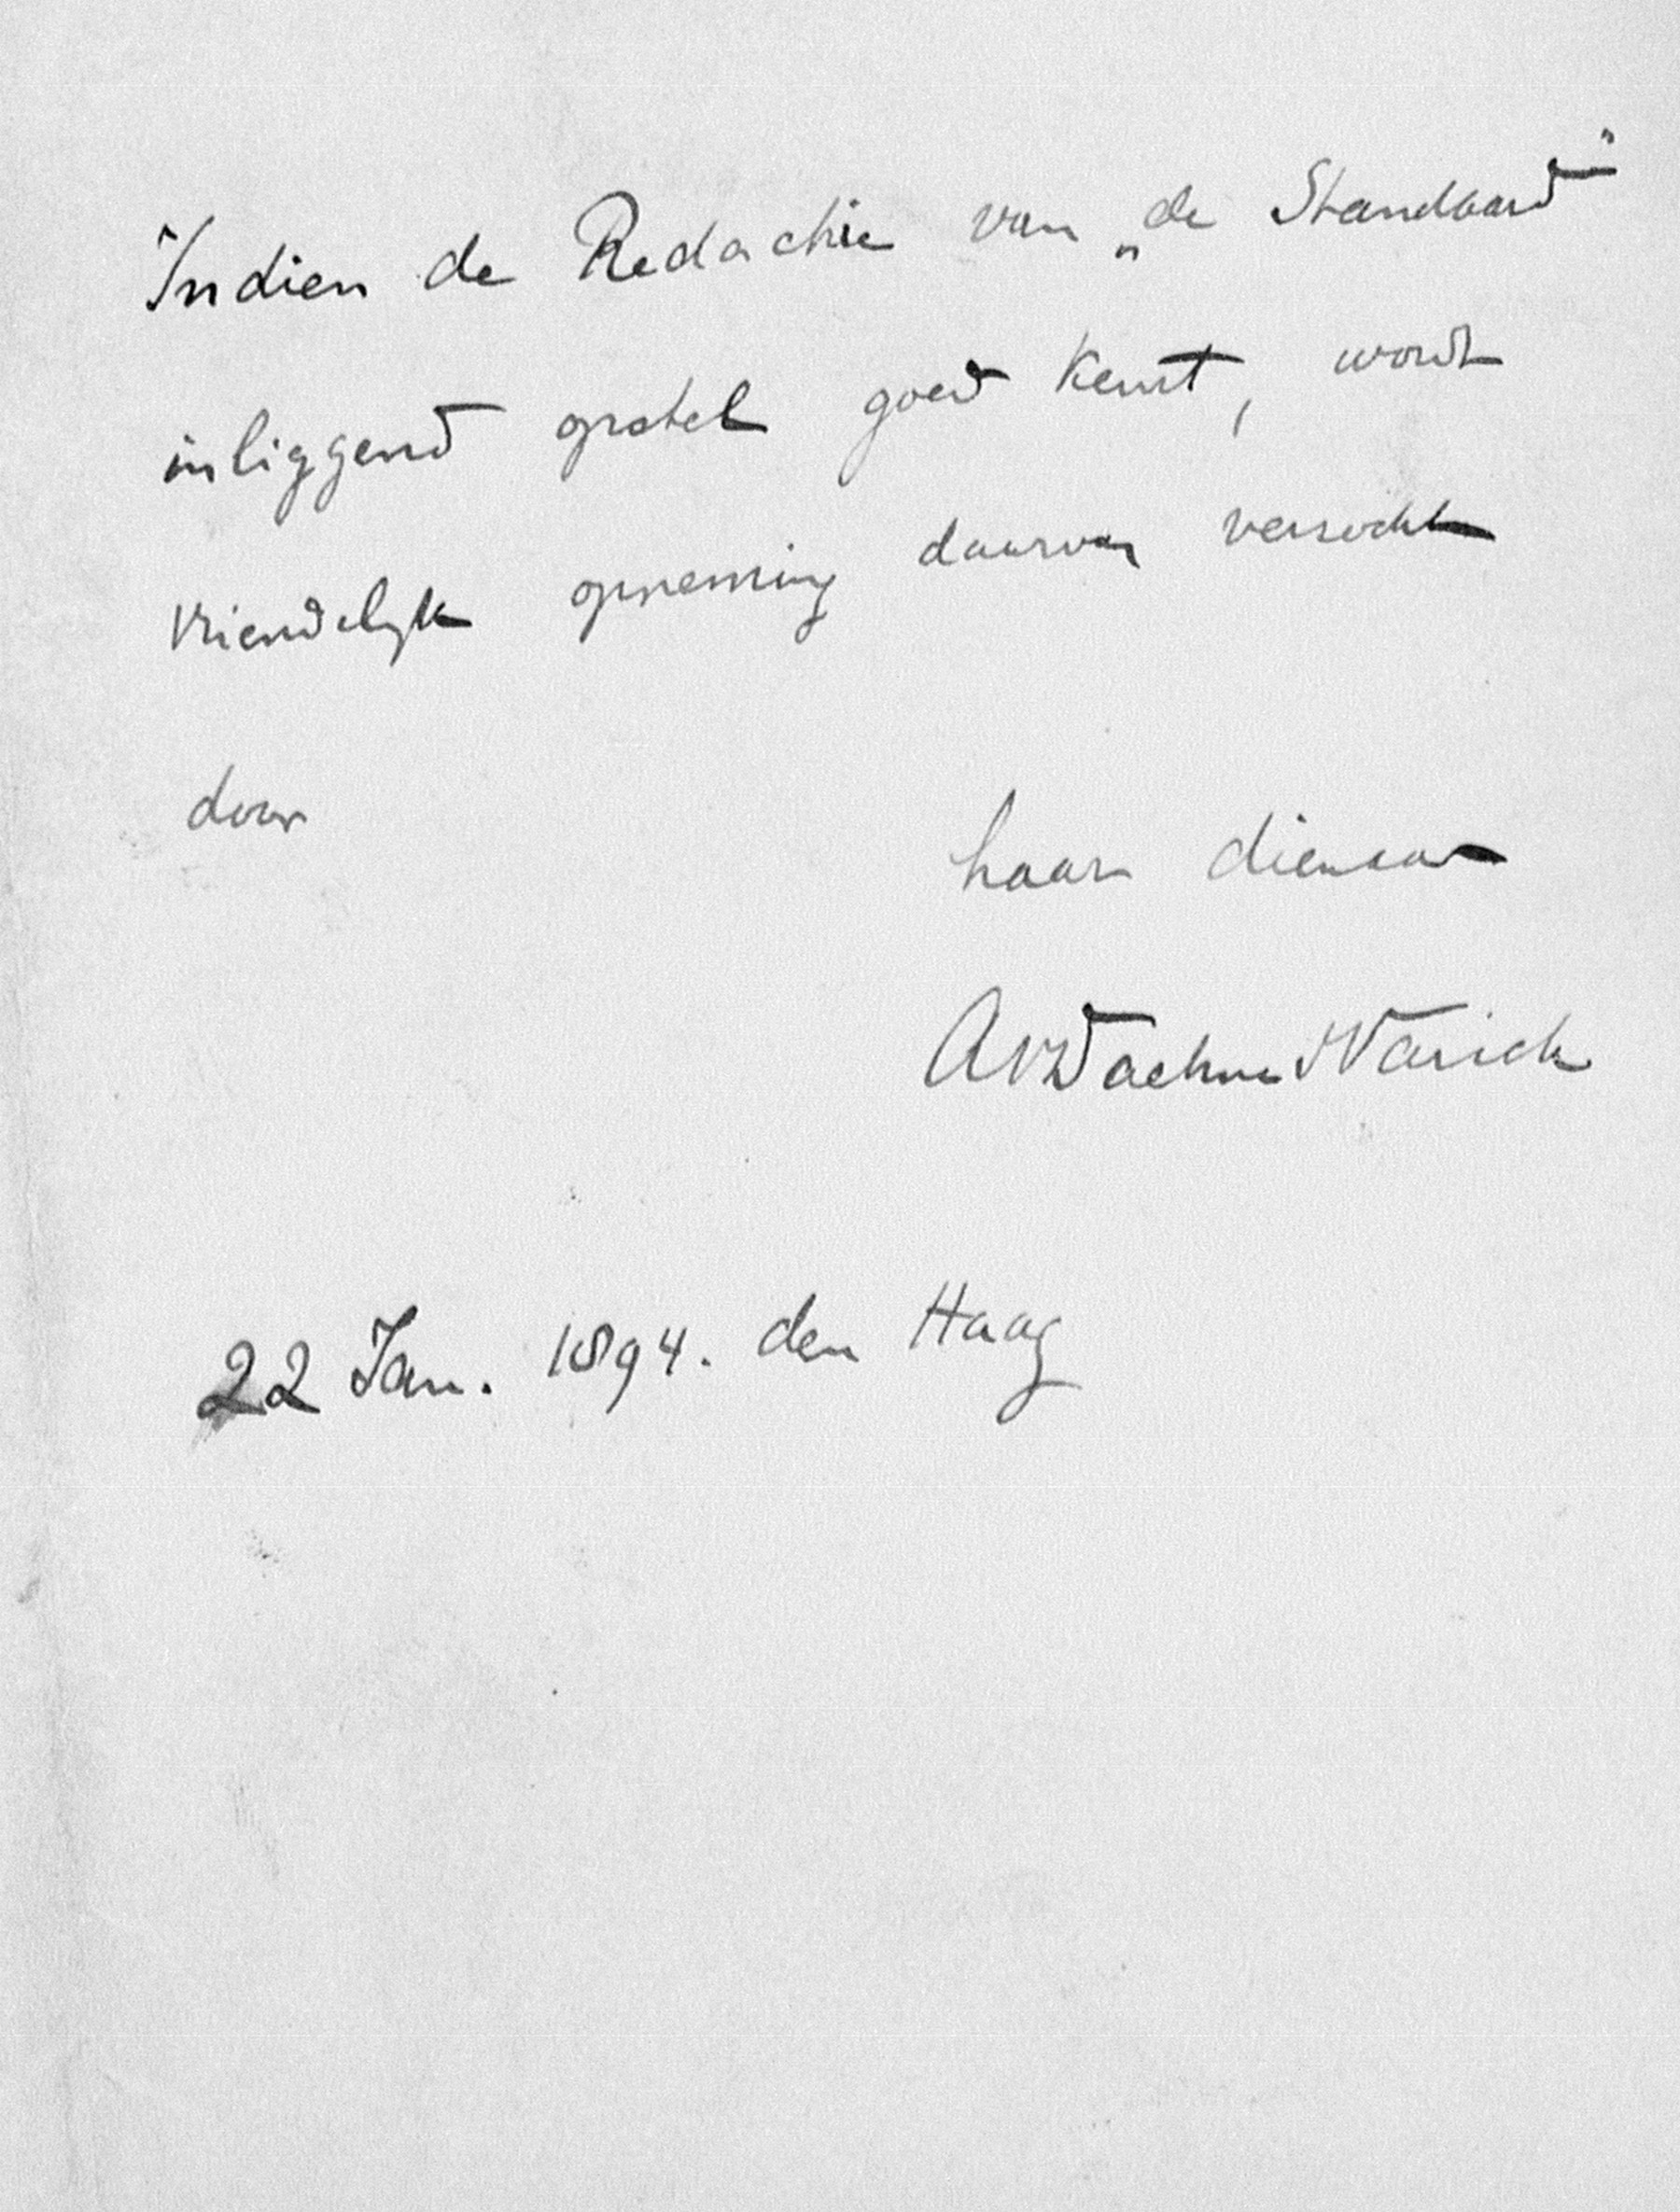 Indien de Redactie van „de Standaard"
inliggend opstel goed keurt, wordt
vriendelijk opneming daarvan verzocht
door
haar dienaar
22 Jan. 1894. den Haag